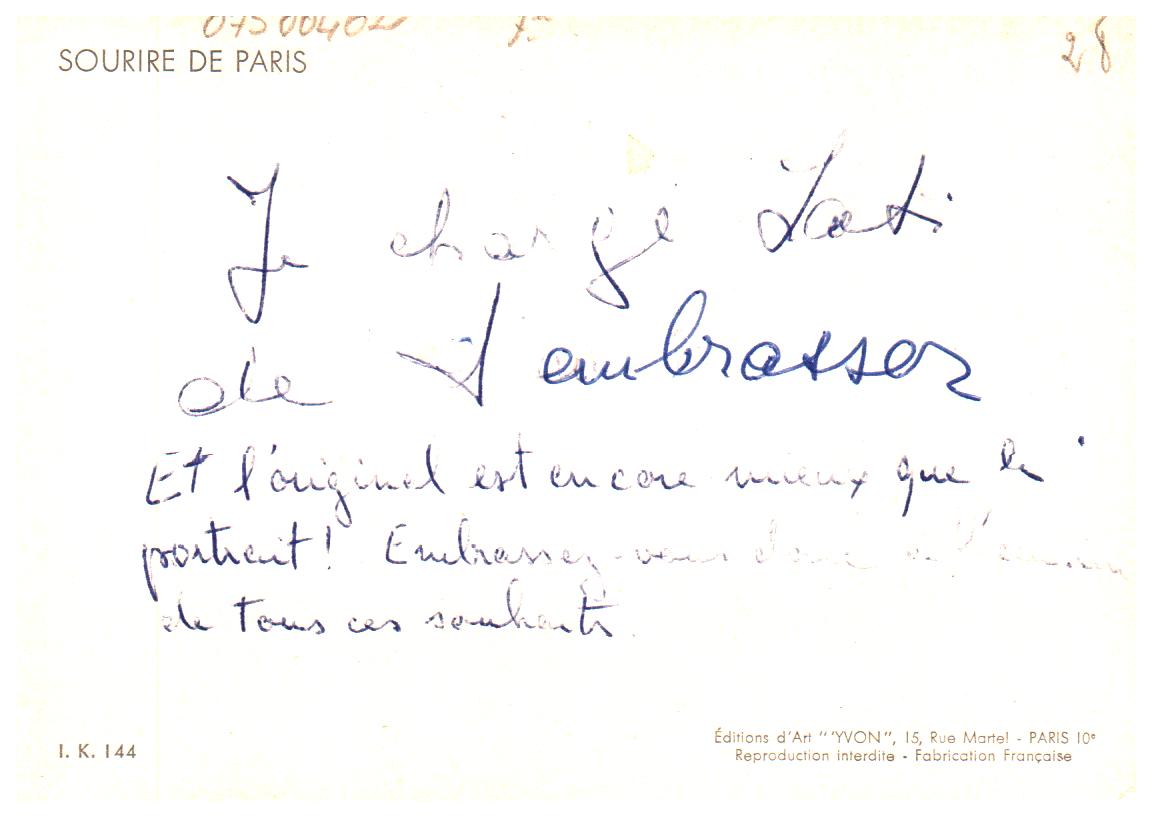 07500402
28
SOURIRE DE PARIS
Je charge Kati
de t'embrasser
Et l'original est encore mieux que le
portrait! Embrassez-vous donc
de tous ces souhaits.
I. K. 144
Éditions d'Art "'YVON", 15, Rue Martel - PARIS 10e
Reproduction interdite - Fabrication Française